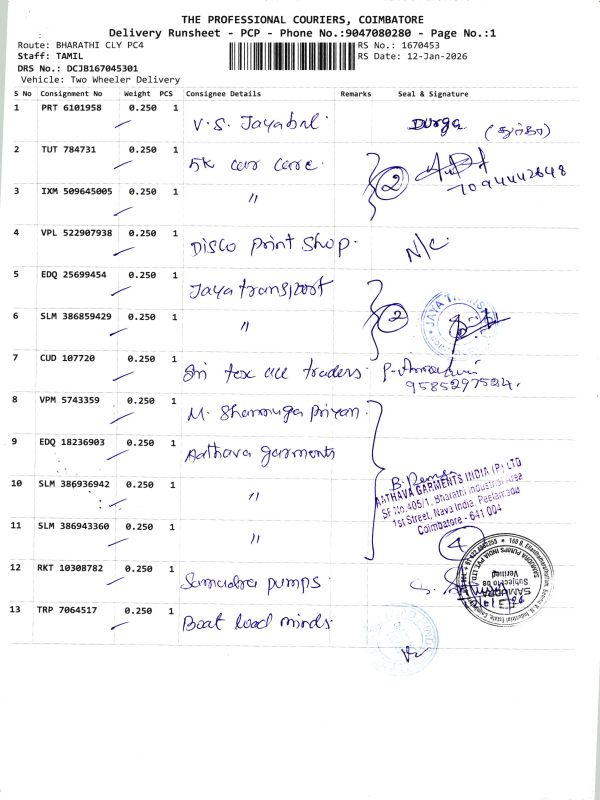 THE PROFESSIONAL COURIERS, COIMBATORE
Delivery Runsheet - PCP - Phone No.:9047080280 - Page No.:1
Route: BHARATHI CLY PC4
RS No.: 1670453
Staff: TAMIL
RS Date: 12-Jan-2026
DRS No.: DCJB167045301
Vehicle: Two Wheeler Delivery
S No Consignment No Weight PCS Consignee Details Remarks Seal & Signature
1 PRT 6101958 0.250 1 V.S. Jayabal. Durga
2 TUT 784731 0.250 1 Sk car care. 2 7094442648
3 IXM 509645005 0.250 1 "
4 VPL 522907938 0.250 1 Disco print shop. N/C
5 EDQ 25699454 0.250 1 Jaya transport
6 SLM 386859429 0.250 1 " 2 JAYA
7 CUD 107720 0.250 1 Sri tex traders. 9585297524.
8 VPM 5743359 0.250 1 M. Shanmuga Priyan.
9 EDQ 18236903 0.250 1 Aathava garments
10 SLM 386936942 0.250 1 "
AATHAVA GARMENTS INDIA (P) LTD
SF No.405/1, Bharathi Industrial Area
1st Street, Nava India, Peelamedu
Coimbatore - 641 004
11 SLM 386943360 0.250 1 " 4
12 RKT 10308782 0.250 1 Samudra pumps.
SAMUDRA PUMPS INDIA PVT. LTD.
SAMUDRA
Verified
13 TRP 7064517 0.250 1 Boat load minds.